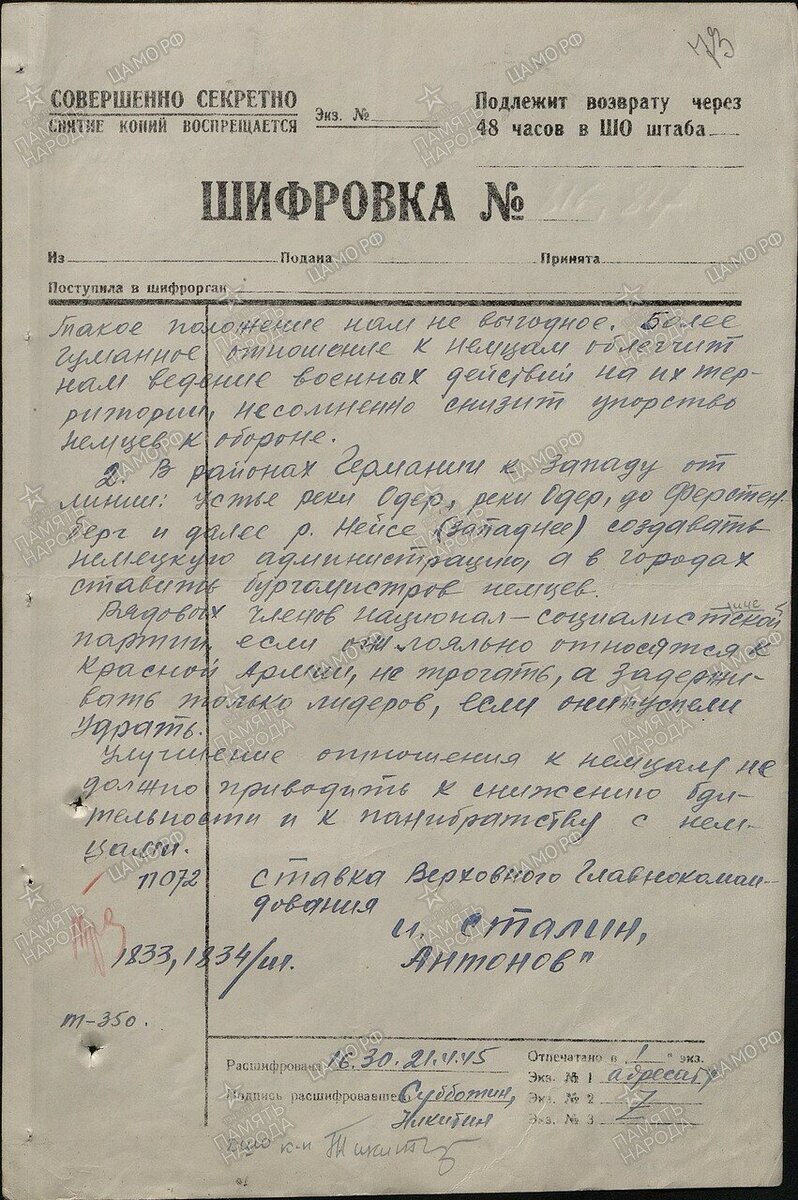 73
СОВЕРШЕННО СЕКРЕТНО
СНЯТИЕ КОПИЙ ВОСПРЕЩАЕТСЯ
Экз. №
Подлежит возврату через
48 часов в ШО штаба
ШИФРОВКА №
Из Подана Принята
Поступила в шифрорган
такое положение нам не выгодное. Более
гуманное отношение к немцам облегчит
нам ведение военных действий на их тер-
ритории, несомненно снизит упорство
немцев к обороне.
2. В районах Германии к западу от
линии: устье реки Одер, реки Одер, до Ферстен-
берг и далее р. Нейсе (западнее) создавать
немецкую администрацию, а в городах
ставить бургомистров немцев.
Рядовых членов национал-социалистской
партии, если они лояльно относятся к
Красной Армии, не трогать, а задержи-
вать только лидеров, если они успели
удрать.
Улучшение отношения к немцам не
должно приводить к снижению бди-
тельности и к панибратству с нем-
цами.
11072 Ставка Верховного Главнокоман-
дования
И. Сталин,
Антонов"
1833, 1834/ш.
т-350.
Расшифрована 16.30. 21.4.45
Подпись расшифровавшего Субботин,
Никитин
Отпечатано в 1 экз.
Экз. № 1 адресату
Экз. № 2
Экз. № 3
ПАМЯТЬ НАРОДА
ЦАМО РФ